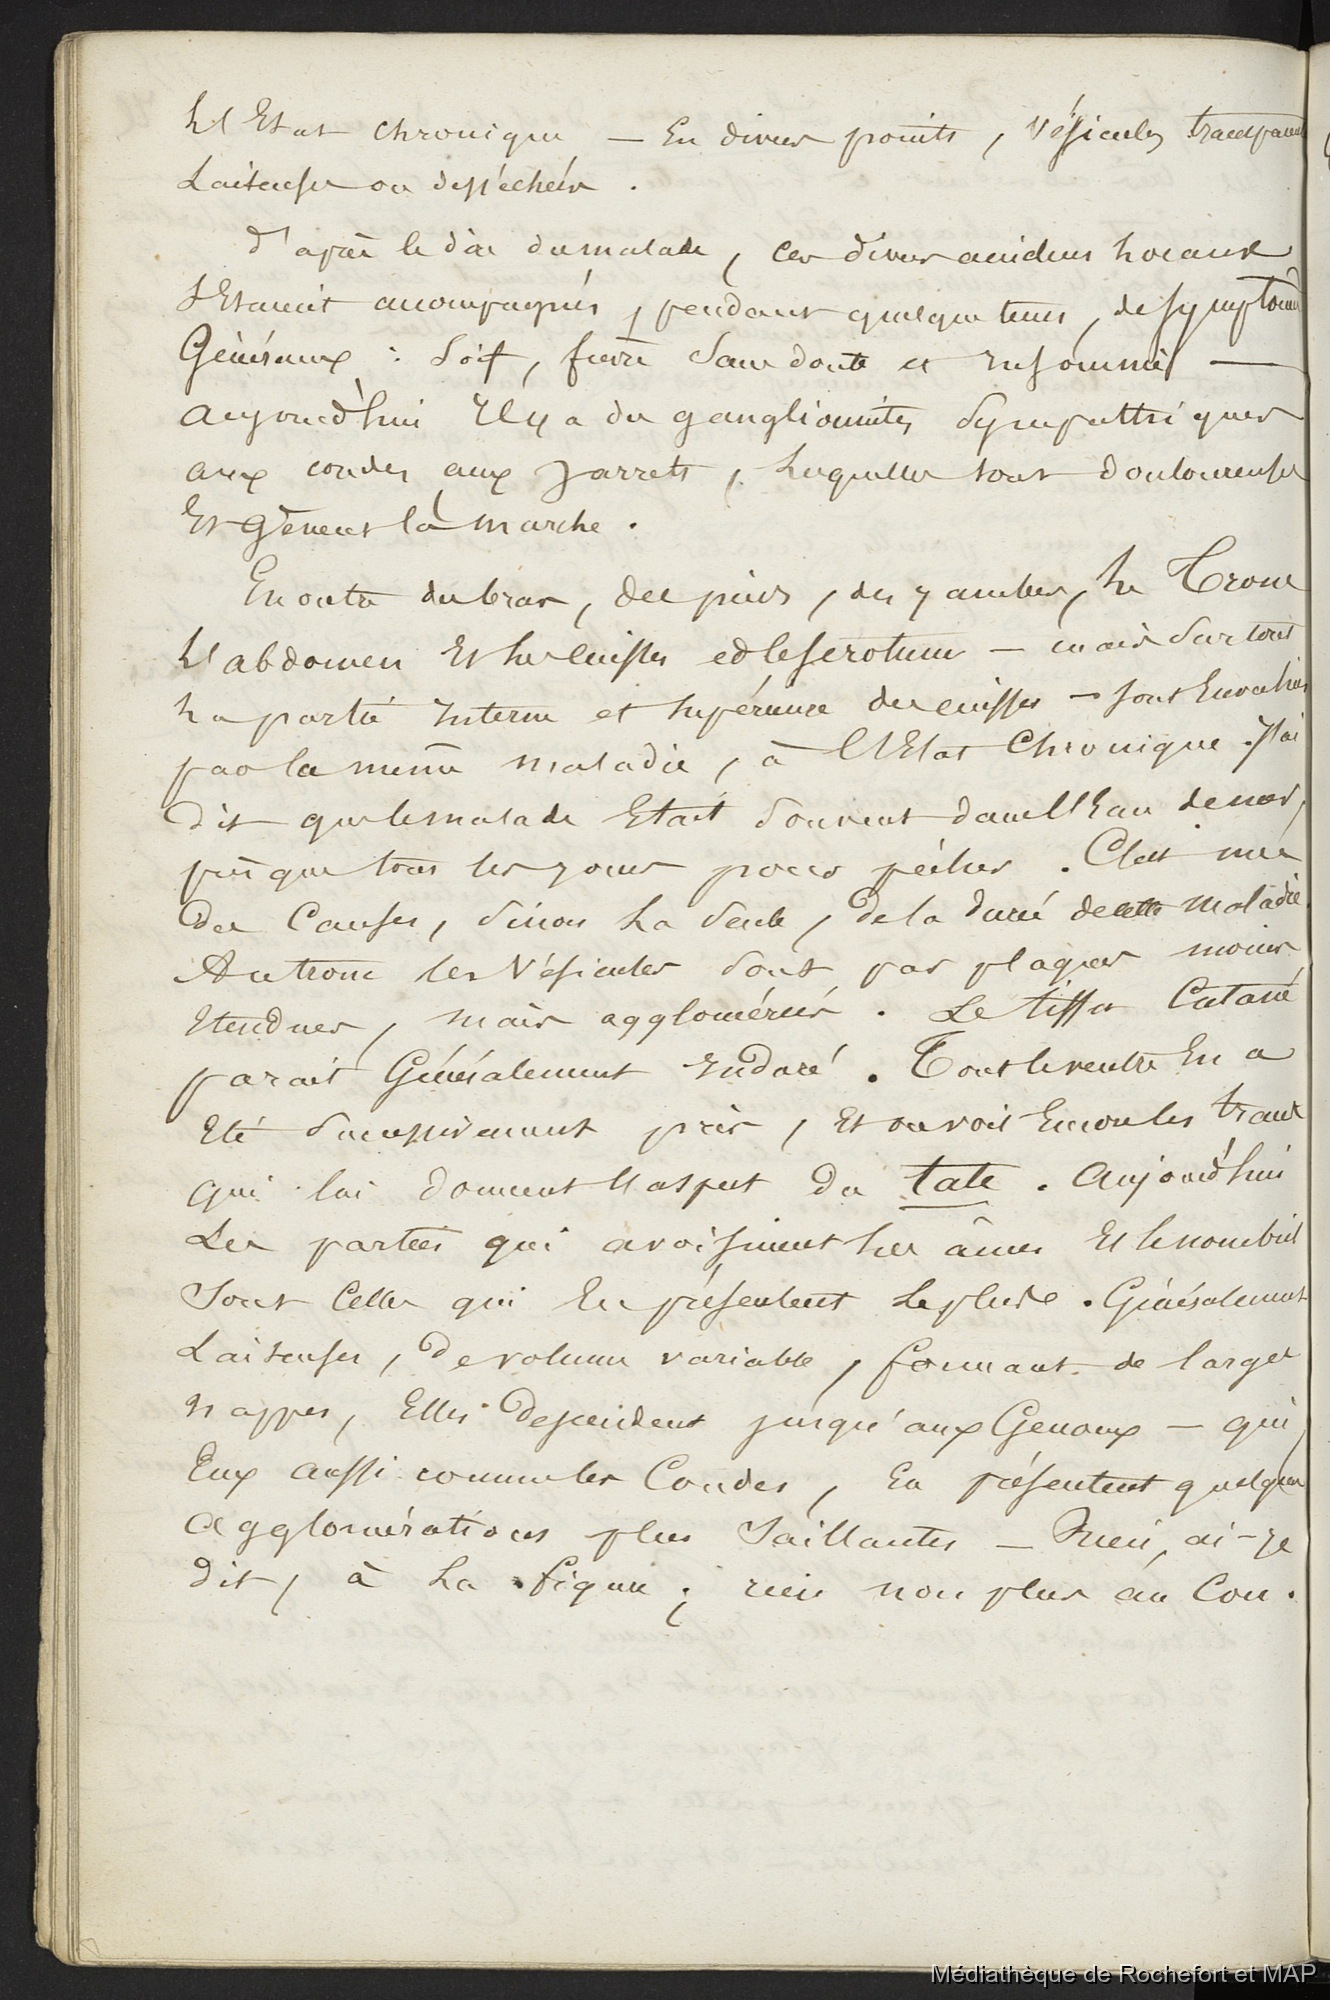 L'Etat chronique — En divers points, Vésicules transparentes
Laiteuses ou desséchées.
D'après le dire du malade, ces divers accidens Locaux
S'Etaient accompagnés, pendant quelque tems, de symptômes
Généraux : Soif, fièvre sans doute et insomnie —
aujourd'hui Il y a des ganglionnites sympathiques
aux coudes, aux Jarrets, Lesquelles sont douloureuses
Et gênent la marche.
En outre des bras, des pieds, des Jambes, Le Tronc
L'abdomen Et Les cuisses et le scrotum — mais surtout
La partie Interne et supérieure des cuisses — sont Envahis
par la même maladie, à L'Etat Chronique. J'ai
dit que le malade Etait souvent dans l'Eau de mer,
puisque tous les jours pour pêcher. C'est une
des Causes, sinon La seule, de la durée de cette maladie.
Au tronc les Vésicules sont par plaques moins
Etendues, mais agglomérées. Le tissu Cutané
parait Généralement Induré. Tout le ventre En a
Eté successivement pris, Et on voit Encore les traces
qui lui donnent l'aspect du tate. Aujourd'hui
Les parties qui avoisinent Les aînes Et le nombril
Sont Celles qui En présentent Le plus. Généralement
Laiteuses, de volume variable, formant de larges
nappes, Elles descendent jusqu'aux Genoux — qui,
Eux aussi comme les Coudes, En présentent quelques
agglomérations plus Saillantes — Rien, ai-je
dit, à La figure ; rien non plus au Cou.
Médiathèque de Rochefort et MAP